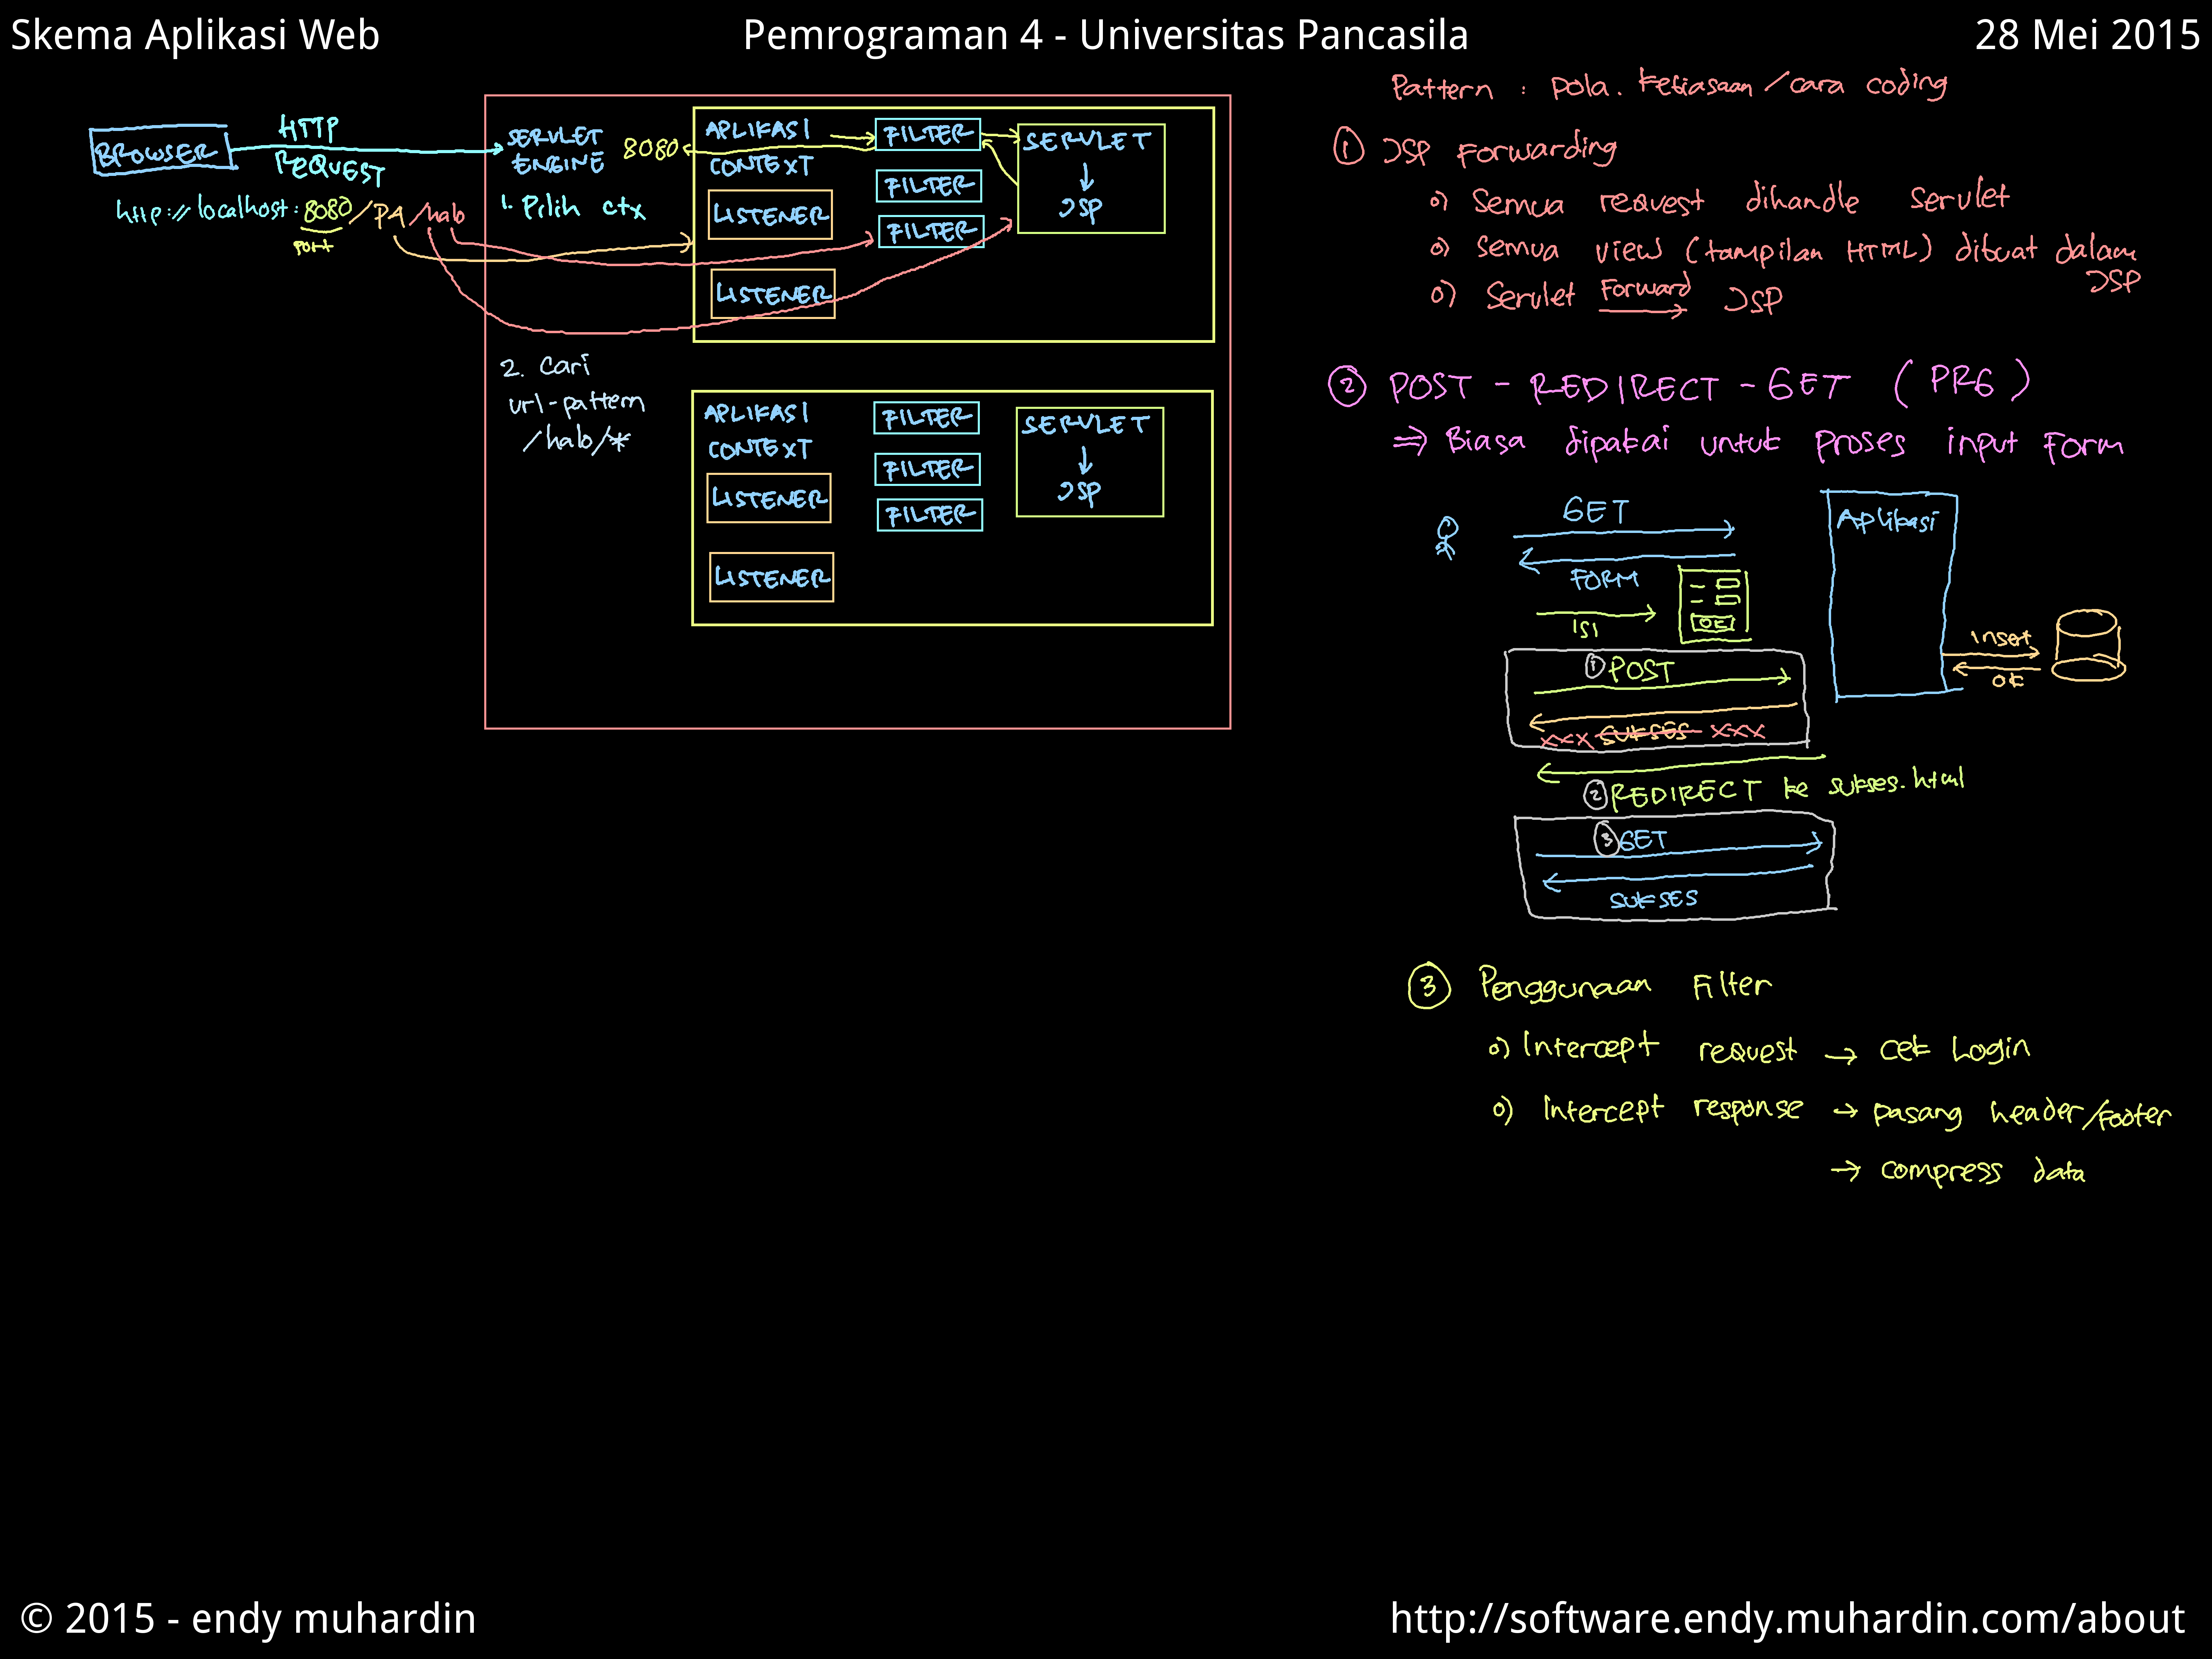 Skema Aplikasi Web
Pemrograman 4 - Universitas Pancasila
28 Mei 2015
BROWSER
HTTP
REQUEST
http://localhost:8080/PA/halo
port
SERVLET
ENGINE
8080
1. Pilih ctx
2. Cari
url-pattern
/halo/*
APLIKASI
CONTEXT
LISTENER
LISTENER
FILTER
FILTER
FILTER
SERVLET
JSP
APLIKASI
CONTEXT
LISTENER
LISTENER
FILTER
FILTER
FILTER
SERVLET
JSP
Pattern : pola. kebiasaan/cara coding
1 JSP Forwarding
o) Semua request dihandle servlet
o) semua view (tampilan HTML) dibuat dalam
JSP
o) Servlet Forward JSP
2 POST - REDIRECT - GET (PRG)
⇒ Biasa dipakai untuk proses input form
GET
FORM
ISI
OK
Aplikasi
insert
ok
1 POST
xxx SUKSES xxx
2 REDIRECT ke sukses.html
3 GET
SUKSES
3 Penggunaan Filter
o) Intercept request → cek Login
o) Intercept response → pasang header/footer
→ compress data
© 2015 - endy muhardin
http://software.endy.muhardin.com/about